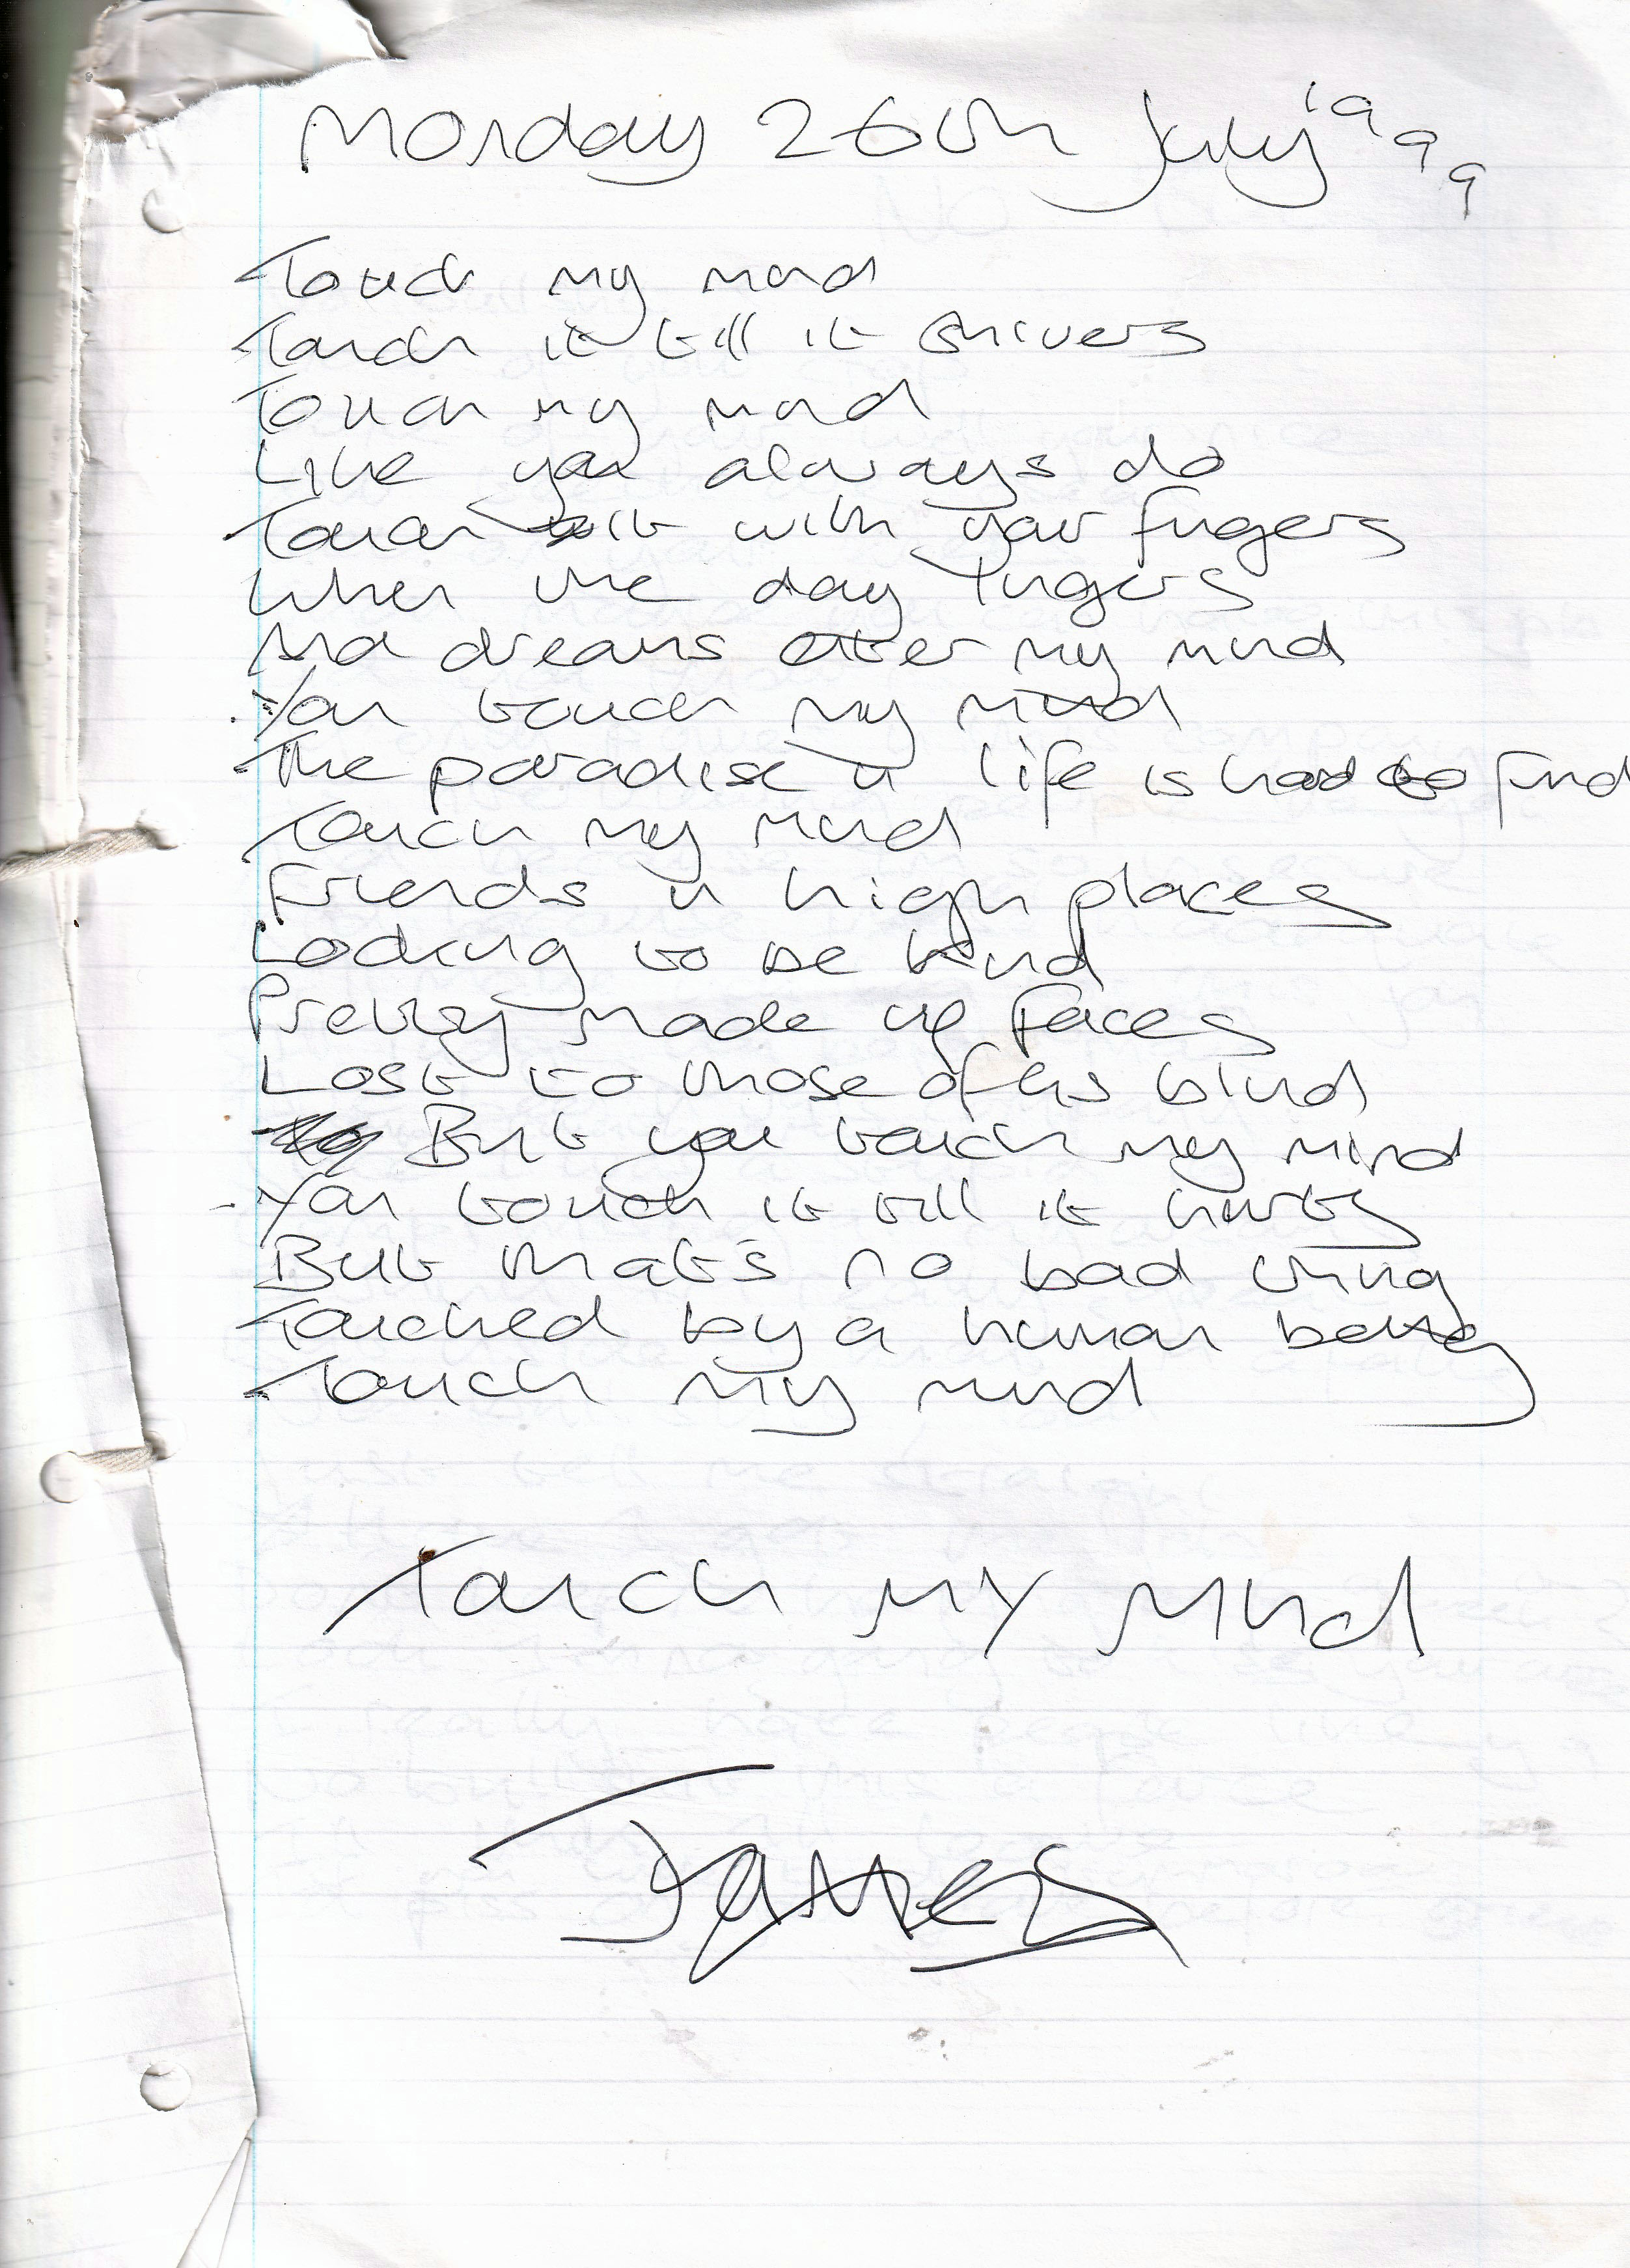 Monday 26th July 1999
Touch my mind
Touch it till it shivers
Touch my mind
Like you always do
Touch it with your fingers
When the day lingers
And dreams enter my mind
You touch my mind
The paradise in life is hard to find
Touch my mind
Friends in high places
Looking to be kind
Pretty made up faces
Lost to those of us blind
But you touch my mind
You touch it till it hurts
But that's no bad thing
Touched by a human being
Touch my mind
Touch My Mind
James